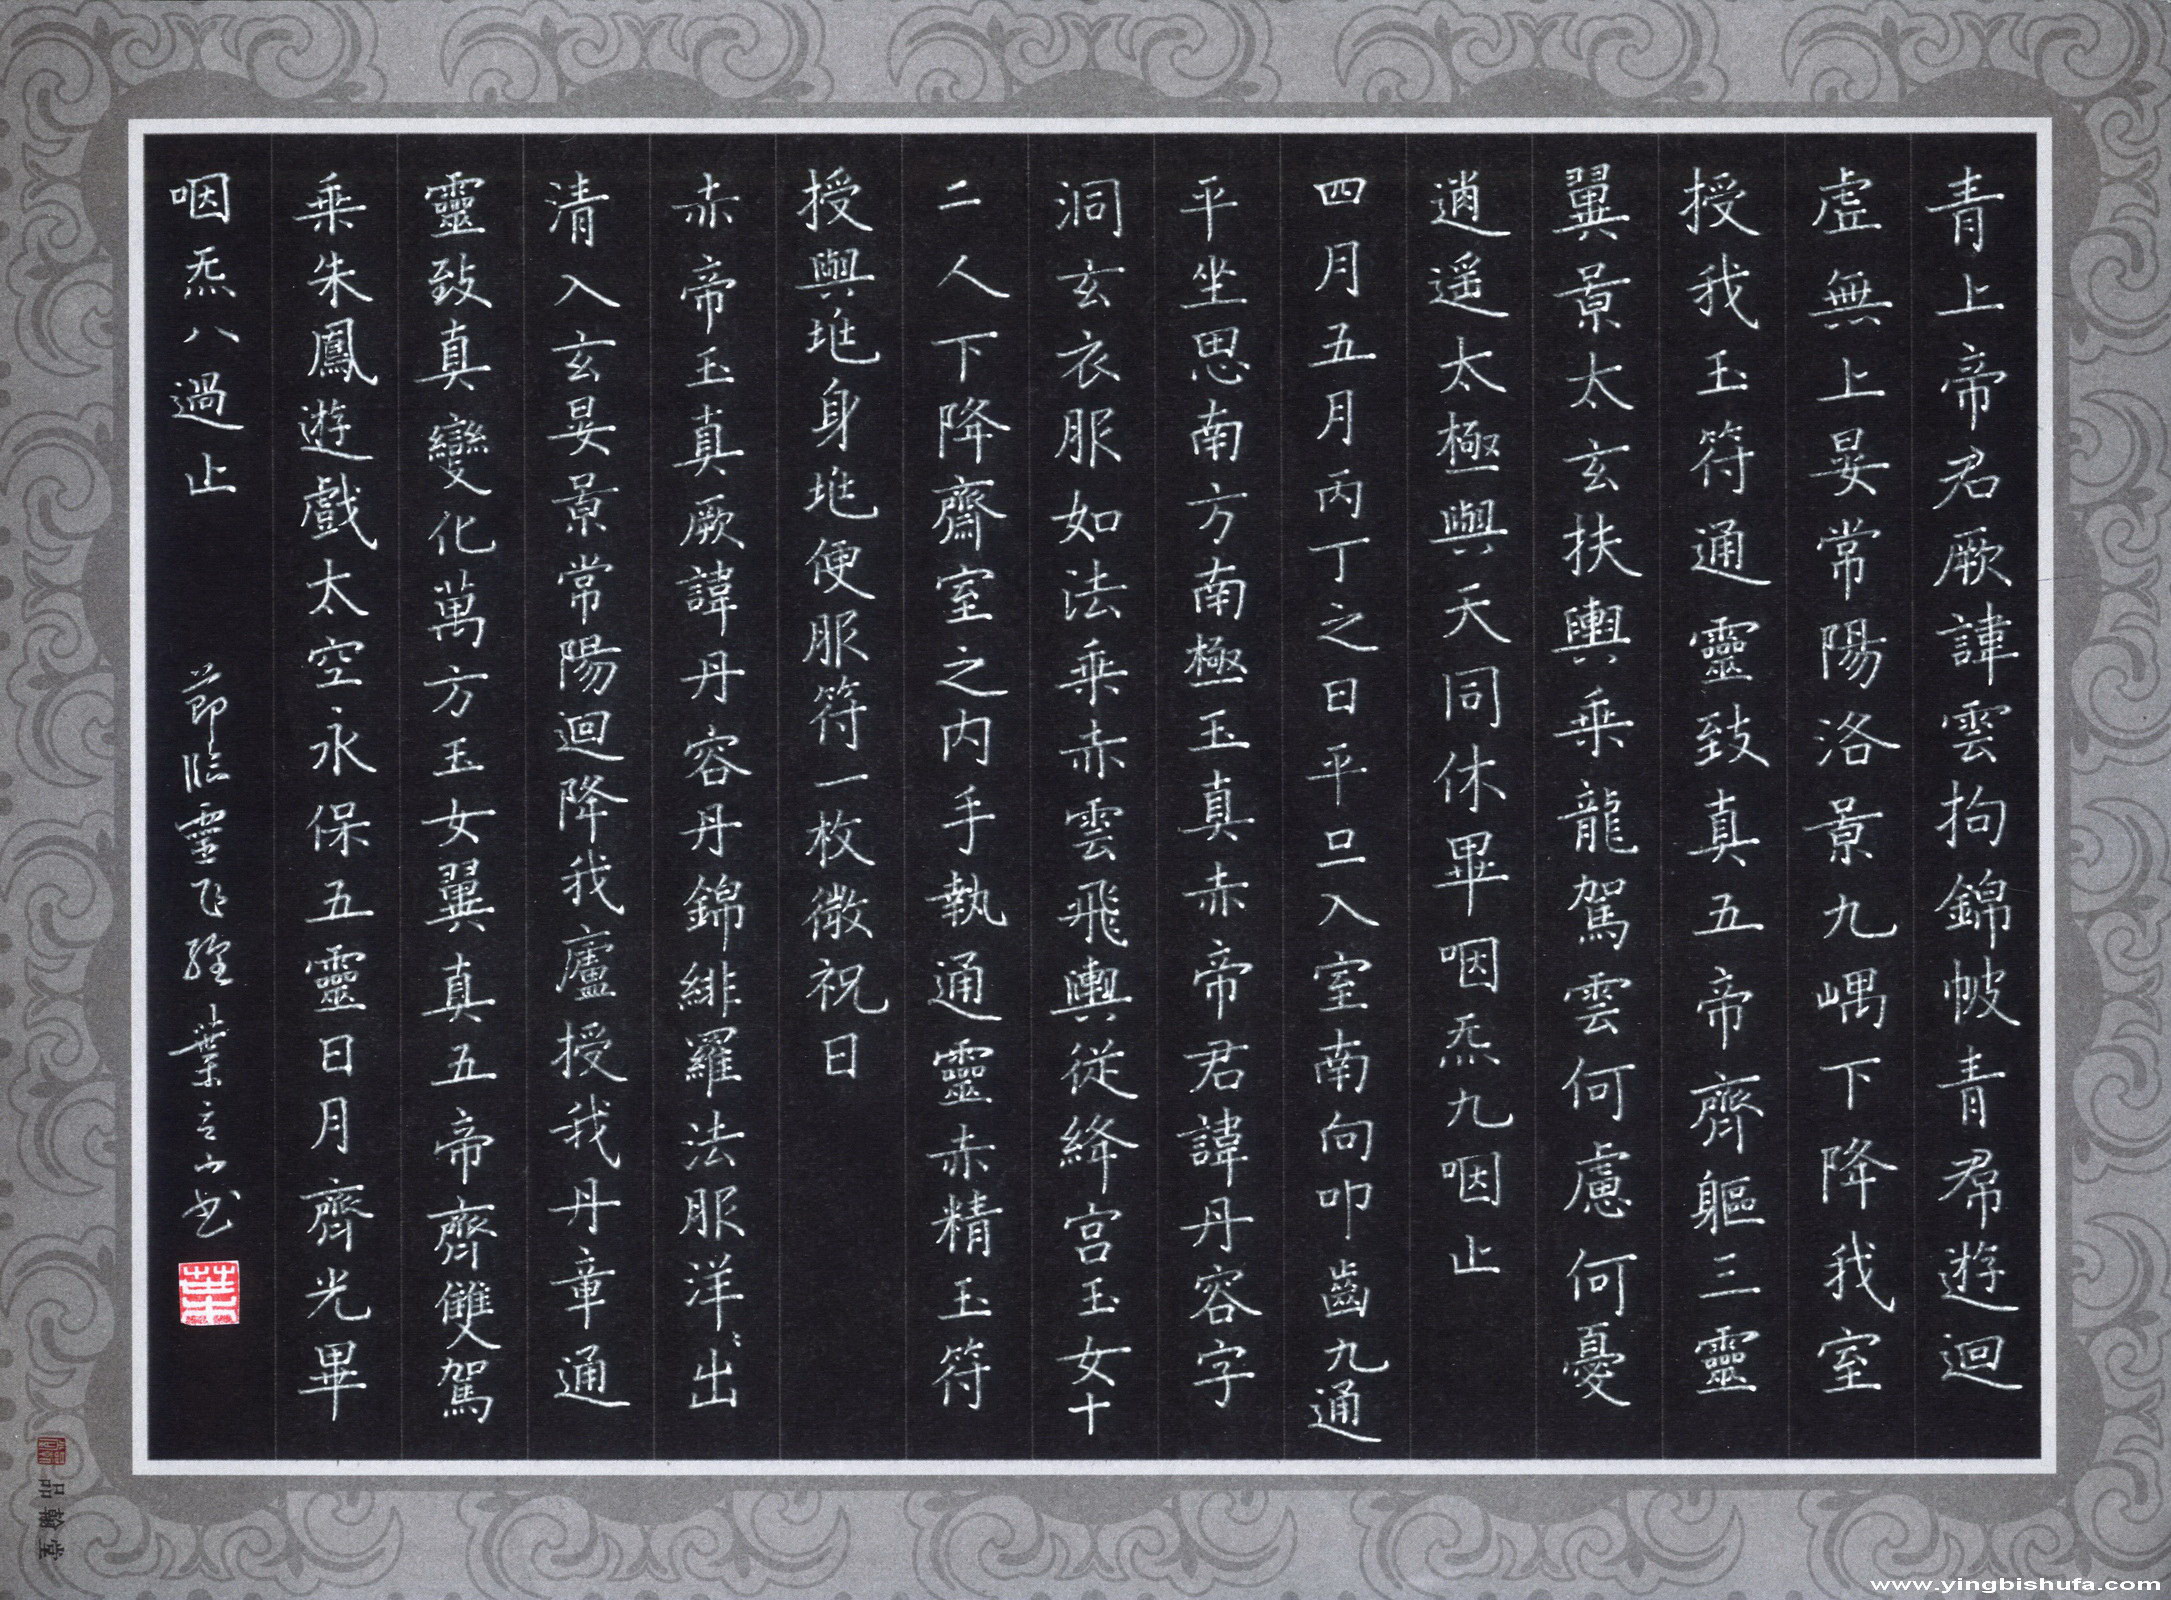 青上帝君厥諱雲拘錦帔青帬遊迴
虛無上晏常陽洛景九嵎下降我室
授我玉符通靈致真五帝齊軀三靈
翼景太玄扶輿乘龍駕雲何慮何憂
逍遥太極與天同休畢咽炁九咽止
四月五月丙丁之日平旦入室南向叩齒九通
平坐思南方南極玉真赤帝君諱丹容字
洞玄衣服如法乘赤雲飛輿從絳宮玉女十
二人下降齋室之内手執通靈赤精玉符
授與兆身兆便服符一枚微祝曰
赤帝玉真厥諱丹容丹錦緋羅法服洋〻出
清入玄晏景常陽迴降我廬授我丹章通
靈致真變化萬方玉女翼真五帝齊雙駕
乘朱鳳遊戲太空永保五靈日月齊光畢
咽炁八過止
節临靈飞經葉立山书
葉
品翰堂
www.yingbishufa.com